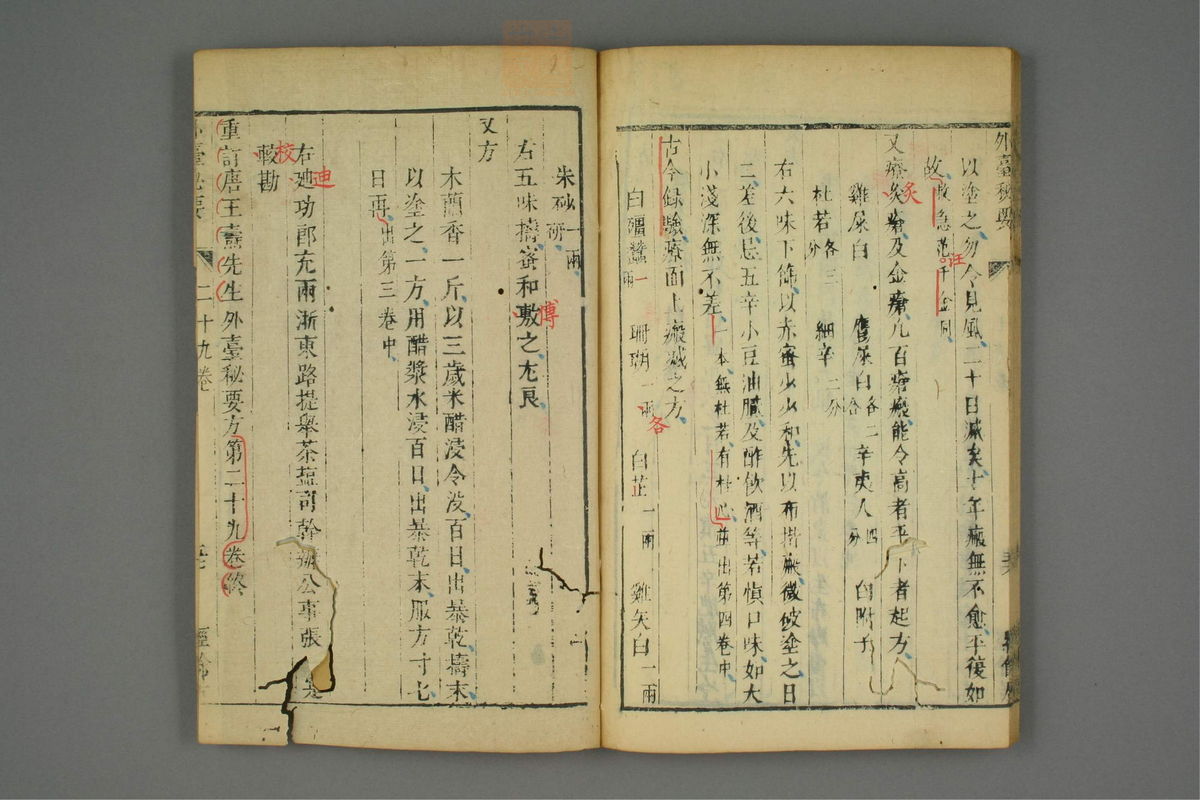 外臺秘要
以塗之勿令見風二十日減矣十年瘢無不愈平復如
故救急范汪千金同
又療灸瘡及金瘡凡百瘡瘢能令高者平下者起方
雞屎白 鷹屎白各二分 辛夷人四分 白附子
杜若各三分 細辛二分
右六味下篩以赤蜜少少和先以布揩瘢微破塗之日
二差後忌五辛小豆油膩及酢飲酒等若慎口味如大
小淺深無不差一本無杜若有杜心並出第四卷中
古今録驗療面上瘢滅之方
白殭蠶一兩 珊瑚一兩 各 白芷一兩 雞矢白一兩
朱砂一兩研
右五味擣蜜和敷之尤良 博
又方
木蘭香一斤以三歲米醋浸令没百日出暴乾擣末
以塗之一方用醋漿水浸百日出暴乾末服方寸七
日再出第三卷中
右廸功郎充兩浙東路提舉茶塩司幹辦公事張寔 迪
較勘 校
重訂唐王燾先生外臺秘要方第二十九卷終
外臺秘要 二十九卷 經餘